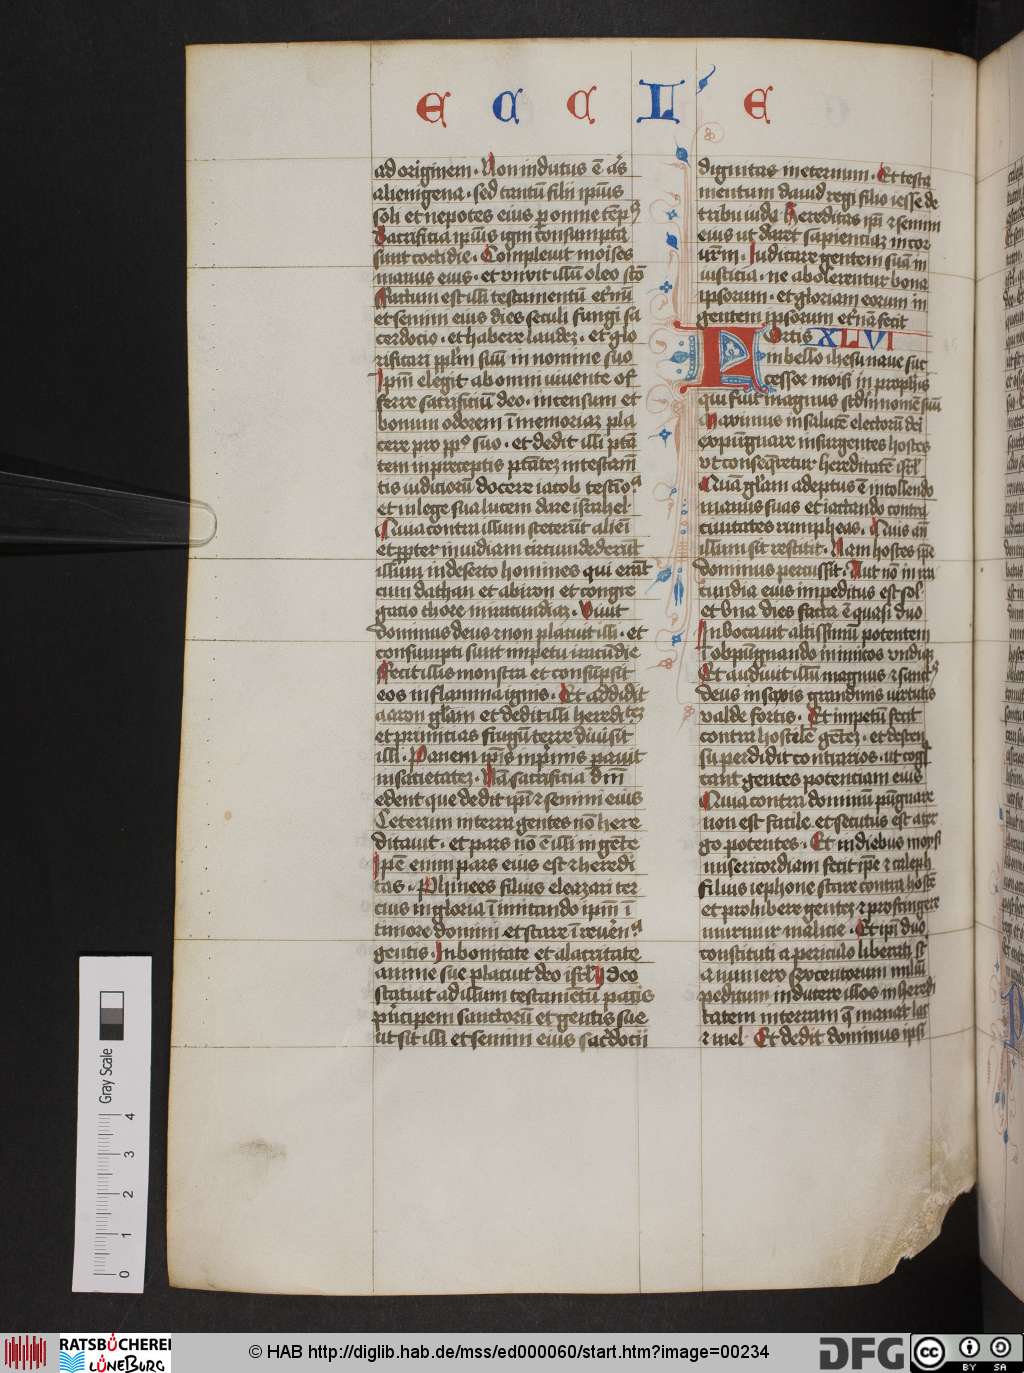 E C C L E
ad originem. Non indutus ē al's
alienigena. sed tantū filii ipsius
soli et nepotes eius per omne temp9
Sacrificia ipsius igni consumpta
sunt cotidie. Compleuit moises
manus eius. et vnxit illū oleo scō
Factum est illi testamentū eternū
et semini eius dies seculi fungi sa
cerdocio. et habere laudez. et glo
rificari pplm suū in nomine suo
Ipm elegit ab omni viuente of
ferre sacrificiū deo. incensum et
bonum odorem ī memoriaz pla
cere pro pplo suo. et dedit illi pta
tem in preceptis ptātez in testam
tis iudiciorū docere iacob testīo
et in lege sua lucem dare israhel
Quia contra illum steterūt alieī
et ppter inuidiam circumdederūt
illum in deserto homines qui erāt
cum dathan et abiron et congre
gacio chore in iracundiaz. Vidit
dominus deus et non placuit illi. et
consumpti sunt impetu iracūdie
Fecit illis monstra et consūpsit
eos in flamma ignis. Et addidit
aaron glām et dedit illi heredi
et primicias frugū terre diuisit
illi. Panem ipsis in primis parauit
in sacietatez. Nā sacrificia dni
edent que dedit ipi et semini eius
Ceterum in terra gentes nō here
ditauit. et pars nō ē illi in gēte
Ipse enim pars eius est et heredi
tas. Phinees filius eleazari ter
cius in gloria ī imitando ipm ī
timore domini et stare ī reuerēn
gentis. In bonitate et alacritate
anime sue placuit deo isrl. Ideo
statuit ad illum testamentū pacis
principem sanctorū et gentis sue
ut sit illi et semini eius sacerdocii
dignitas in eternum. Et testa
mentum dauid regi filio iesse de
tribu iuda. Hereditas ipi et semini
eius ut daret sapienciaz in cor
nrm. Iudicare gentem suā in
iusticia. ne abolerentur bona
ipsorum. et gloriam eorum in
gentem ipsorum eternā fecit
Fortis XLVI
in bello ihesu naue suc
cessor moisi in prophis
qui fuit magnus scdm nomē suū
Maximus in salutē electorū dei
expūgnare insurgentes hostes
vt consequeretur hereditatē isrl
Quā glām adeptus ē in tollendo
manus suas et iactando contra
ciuitates rumpheas. Quis añ
illum sic restitit. Nam hostes ipse
dominus percussit. Aut nō in ira
cundia eius impeditus est sol
et vna dies facta ē quasi duo
Inuocauit altissimū potentem
ī obpūgnando inimicos vndiqȝ
Et audiuit illū magnus et sanct9
deus in saxis grandinis virtutis
valde fortis. Et impetū fecit
contra hostilē gētez. et descen
su perdidit contrarios. ut cogn
cant gentes potentiam eius
Quia contra dominū pūgnare
non est facile. et secutus est a ter
go potentes. Et in diebus moysi
misericordiam fecit ipse et caleph
filius iephone stare contra hostē
et prohibere gentez et profringere
murmur malicie. Et ipi duo
constituti a periculo liberati st
a numero sexcentorum milium
peditum inducere illos in heredi
tatem in terram q manat lac
et mel. Et dedit dominus ipsi
Gray Scale
0 1 2 3 4
RATSBÜCHEREI
LÜNEBURG
© HAB http://diglib.hab.de/mss/ed000060/start.htm?image=00234
DFG
cc BY SA